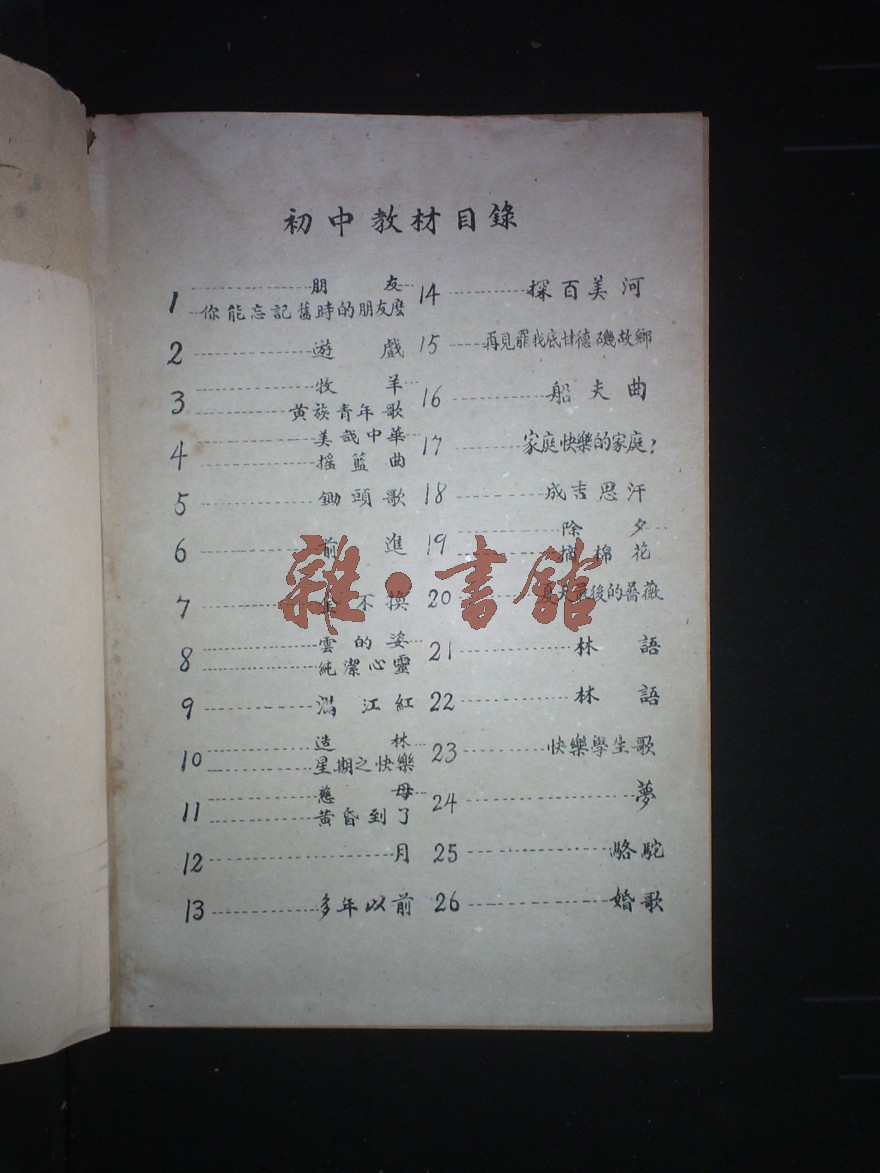 初中教材目錄
1 朋友
你能忘記舊時的朋友麽
2 遊戲
3 牧羊
黃族青年歌
4 美哉中華
搖籃曲
5 鋤頭歌
6 前進
7 不換
8 雲的姿
純潔心靈
9 滿江紅
10 造林
星期之快樂
11 慈母
黃昏到了
12 月
13 多年以前
14 探百美河
15 再見罷我底甘德磯故鄉
16 船夫曲
17 家庭快樂的家庭?
18 成吉思汗
19 除夕
摘棉花
20 夏天最後的薔薇
21 林語
22 林語
23 快樂學生歌
24 夢
25 駱駝
26 婚歌
雜·書館